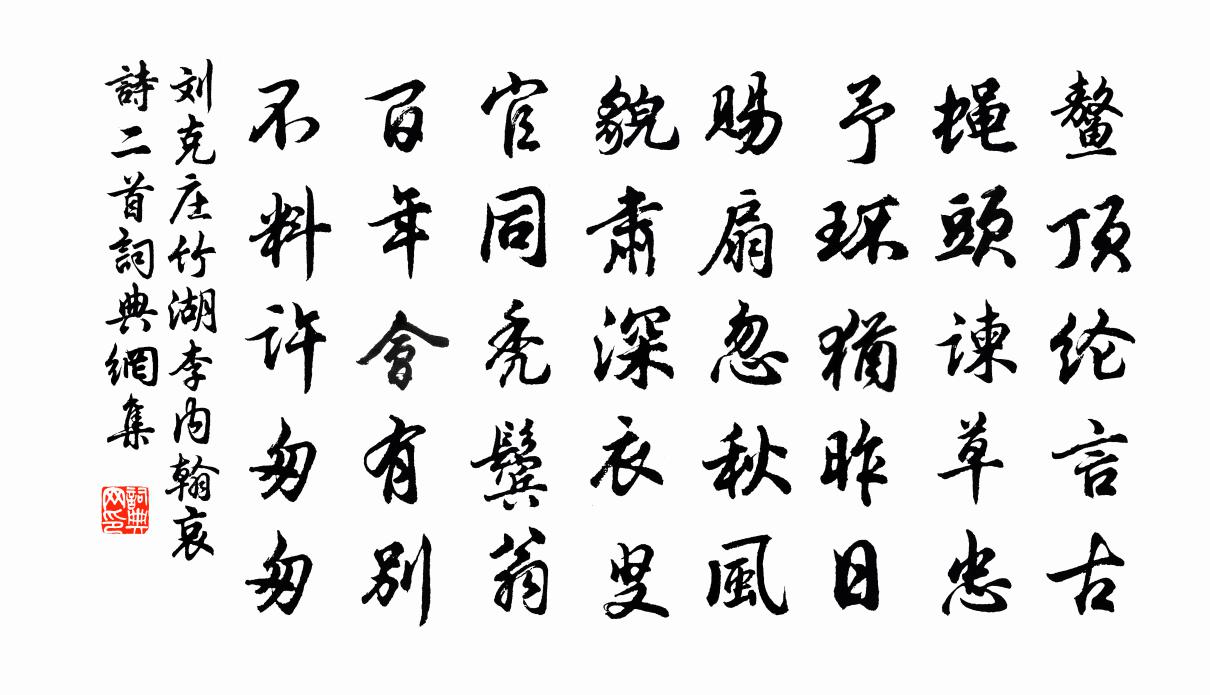 鳌顶纶言古
蝇頭谏草忠
予环猶昨日
賜扇忽秋風
貌肅深衣叟
官同秃鬓翁
百年會有别
不料许匆匆
刘克庄竹湖李内翰哀
詩二首詞典網集
詞典网印